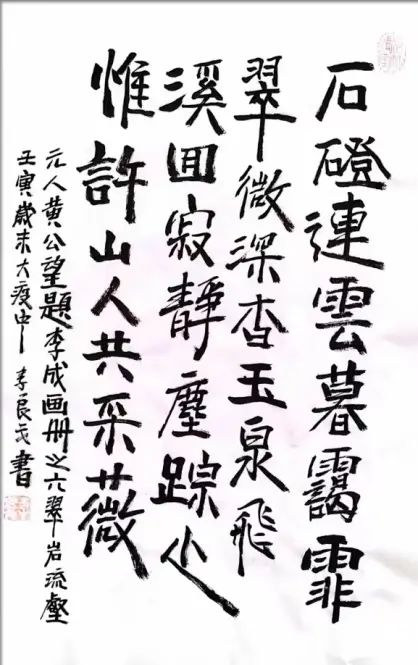 石磴連雲暮靄霏
翠微深杳玉泉飛
溪囬寂靜塵踪少
惟許山人共采薇
元人黄公望題李成画册之六翠岩流壑
壬寅歲末大疫中 李良 書